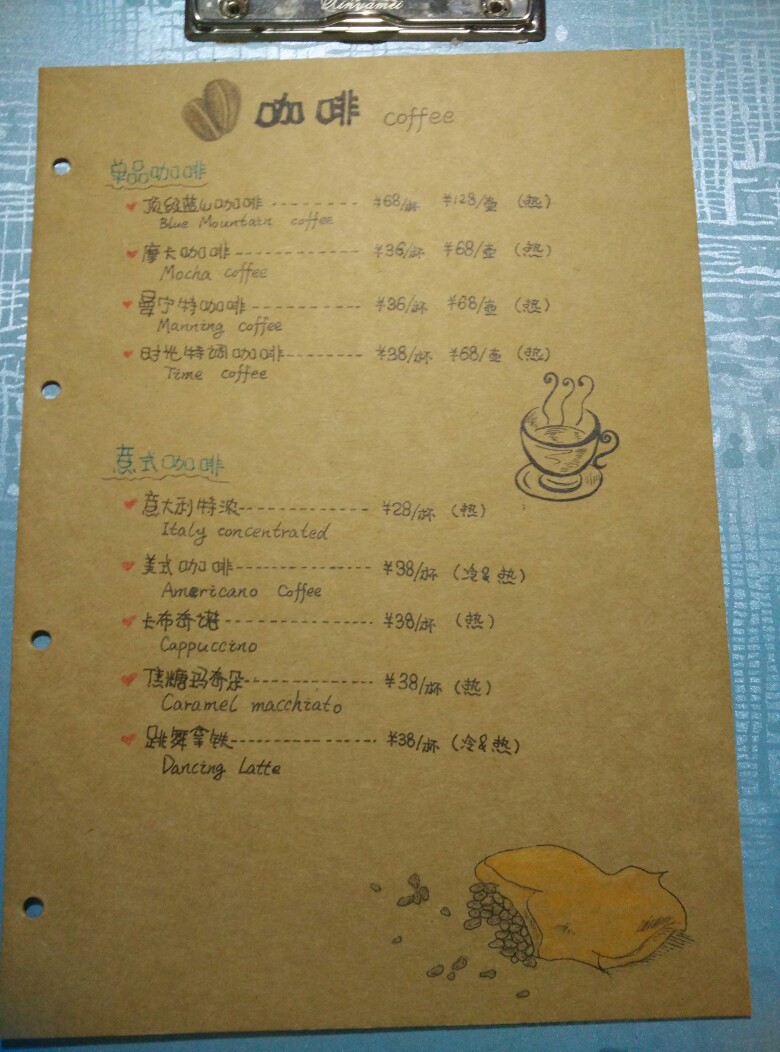 Xinyamei
咖啡 coffee
单品咖啡
顶级蓝山咖啡 ---------- ¥68/杯 ¥128/壶 (热)
Blue Mountain coffee
摩卡咖啡 -------------- ¥36/杯 ¥68/壶 (热)
Mocha coffee
曼宁特咖啡 ------------ ¥36/杯 ¥68/壶 (热)
Manning coffee
时光特调咖啡 ---------- ¥38/杯 ¥68/壶 (热)
Time coffee
意式咖啡
意大利特浓 -------------- ¥28/杯 (热)
Italy concentrated
美式咖啡 -------------- ¥38/杯 (冷&热)
Americano Coffee
卡布奇诺 -------------- ¥38/杯 (热)
Cappuccino
焦糖玛奇朵 -------------- ¥38/杯 (热)
Caramel macchiato
跳舞拿铁 -------------- ¥38/杯 (冷&热)
Dancing Latte